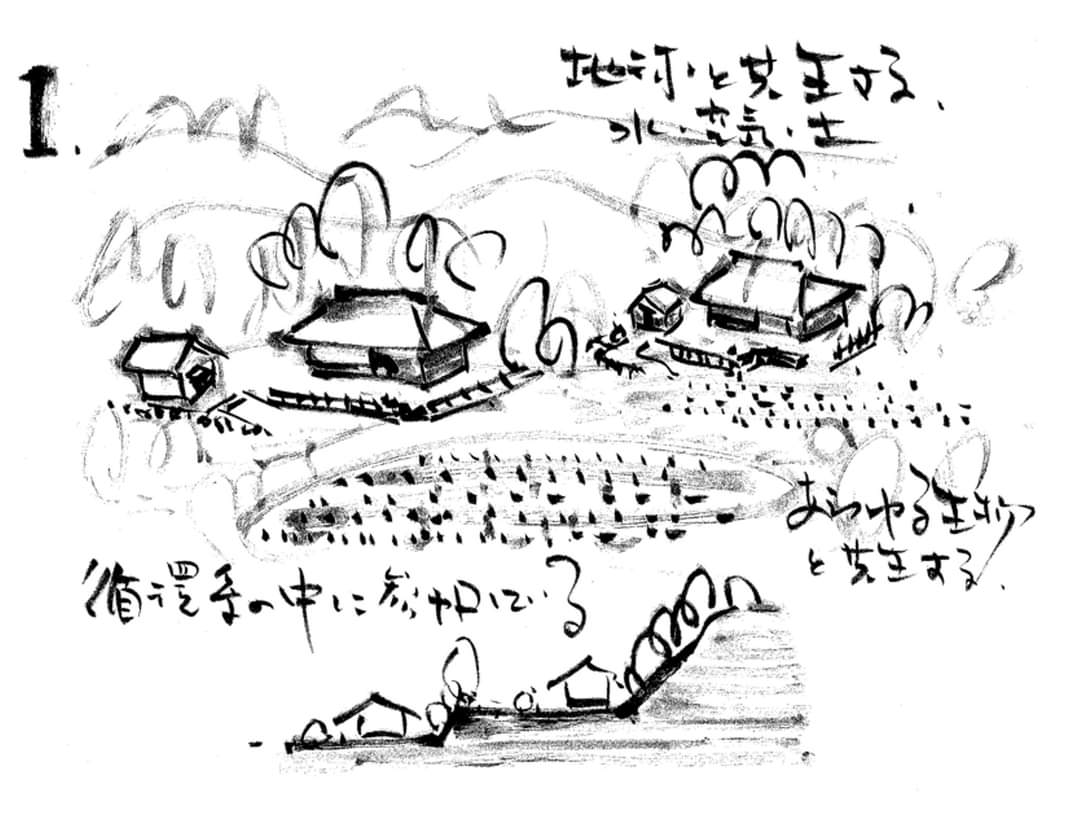 1.
地球と共生する.
水・空気・土
あらゆる生物
と共生する.
循環系の中に参加している